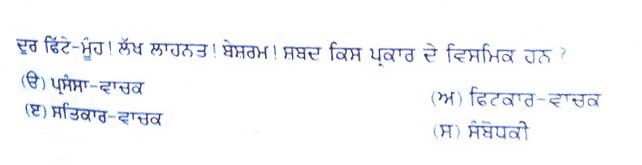 ਦੂਰ ਫਿੱਟੇ-ਮੂੰਹ! ਲੱਖ ਲਾਹਨਤ! ਬੇਸ਼ਰਮ! ਸ਼ਬਦ ਕਿਸ ਪ੍ਰਕਾਰ ਦੇ ਵਿਸਮਿਕ ਹਨ ?
(ੳ) ਪ੍ਰਸੰਸਾ-ਵਾਚਕ
(ਅ) ਫਿਟਕਾਰ-ਵਾਚਕ
(ੲ) ਸਤਿਕਾਰ-ਵਾਚਕ
(ਸ) ਸੰਬੋਧਕੀ